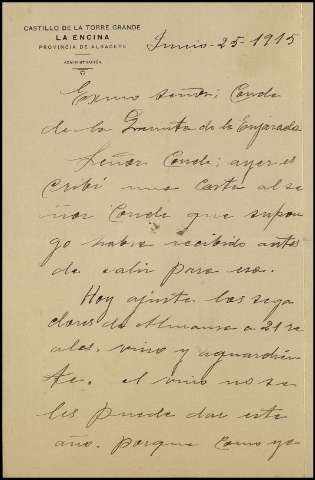 CASTILLO DE LA TORRE GRANDE
LA ENCINA
PROVINCIA DE ALBACETE
ADMINISTRACIÓN
Junio-25-1915
Exmo Señor; Conde
de la Granita de la Enjarada
Señor Conde; ayer es
cribi una carta al se
ñor Conde que supon
go habra recibido antes
de salir para esa.
Hoy ajuste los sega
dores de Almansa a 21 re
ales, vino y aguardien
te. el vino no se
les puede dar este
año. porque como ya